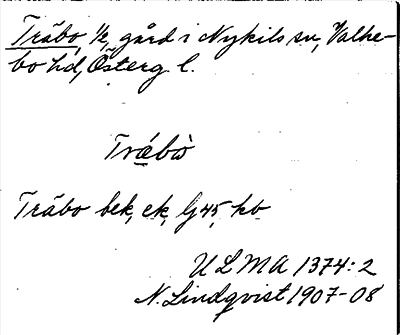 Träbo, 1/2, gård i Nykils sn, Valke-
bo hd, Österg. l.
Träbò
Träbo bek, ek, lj 45, kb
ULMA 1374:2
N. Lindqvist 1907-08